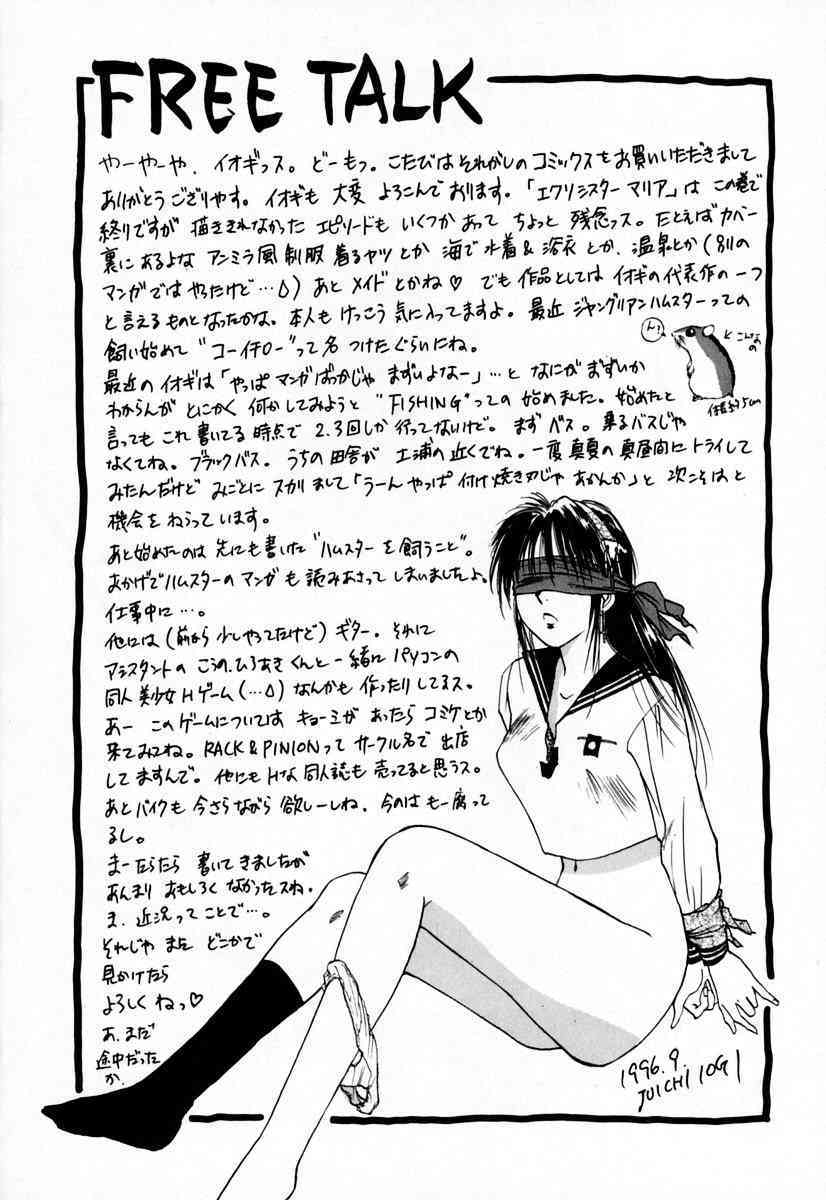 FREE TALK
やーやーや、イオギっス。どーもっ。こたびはそれがしのコミックスをお買いいただきまして
ありがとうござりやす。イオギも大変よろこんでおります。「エクソシスターマリア」はこの巻で
終りですが描ききれなかったエピソードもいくつかあってちょっと残念っス。たとえばカバー
裏にあるよなアンミラ風制服着るヤツとか海で水着&浴衣とか、温泉とか(別の
マンガではやったけど…Δ)あとメイドとかね♡でも作品としてはイオギの代表作の一つ
と言えるものとなったかな。本人もけっこう気に入ってますよ。最近ジャンガリアンハムスターっての
飼い始めて“コーイチロー”って名つけたぐらいにね。
ん!
←こんなの
体長約5cm
最近のイオギは「やっぱマンガばっかじゃまずいよなー」…となにがまずいか
わからんがとにかく何かしてみようと“FISHING”っての始めました。始めたと
言ってもこれ書いてる時点で2.3回しか行ってないけど。まずバス。乗るバスじゃ
なくてね。ブラックバス。うちの田舎が土浦の近くでね。一度真夏の真昼間にトライして
みたんだけどみごとにスカりまして「うーんやっぱ付け焼き刃じゃあかんか」と次こそはと
機会をねらっています。
あと始めたのは先にも書いた“ハムスターを飼うこと”。
おかげでハムスターのマンガも読みあさってしまいましたよ。
仕事中に…。
他には(前から少しやってたけど)ギター。それに
アシスタントのこうのひろあきくんと一緒にパソコンの
同人美少女Hゲーム(…Δ)なんかも作ったりしてるス。
あーこのゲームについてはキョーミがあったらコミケとか
来てみてね。RACK&PINIONってサークル名で出店
してますんで。他にもHな同人誌も売ってると思うス。
あとバイクも今さらながら欲しーしね、今のはもー腐って
るし。
まーだらだら書いてきましたが
あんまりおもしろくなかったスね。
ま、近況ってことで…。
それじゃまたどこかで
見かけたら
よろしくねっ♡
あ、まだ
途中だった
か、
1996.9.
JUICHI IOGI